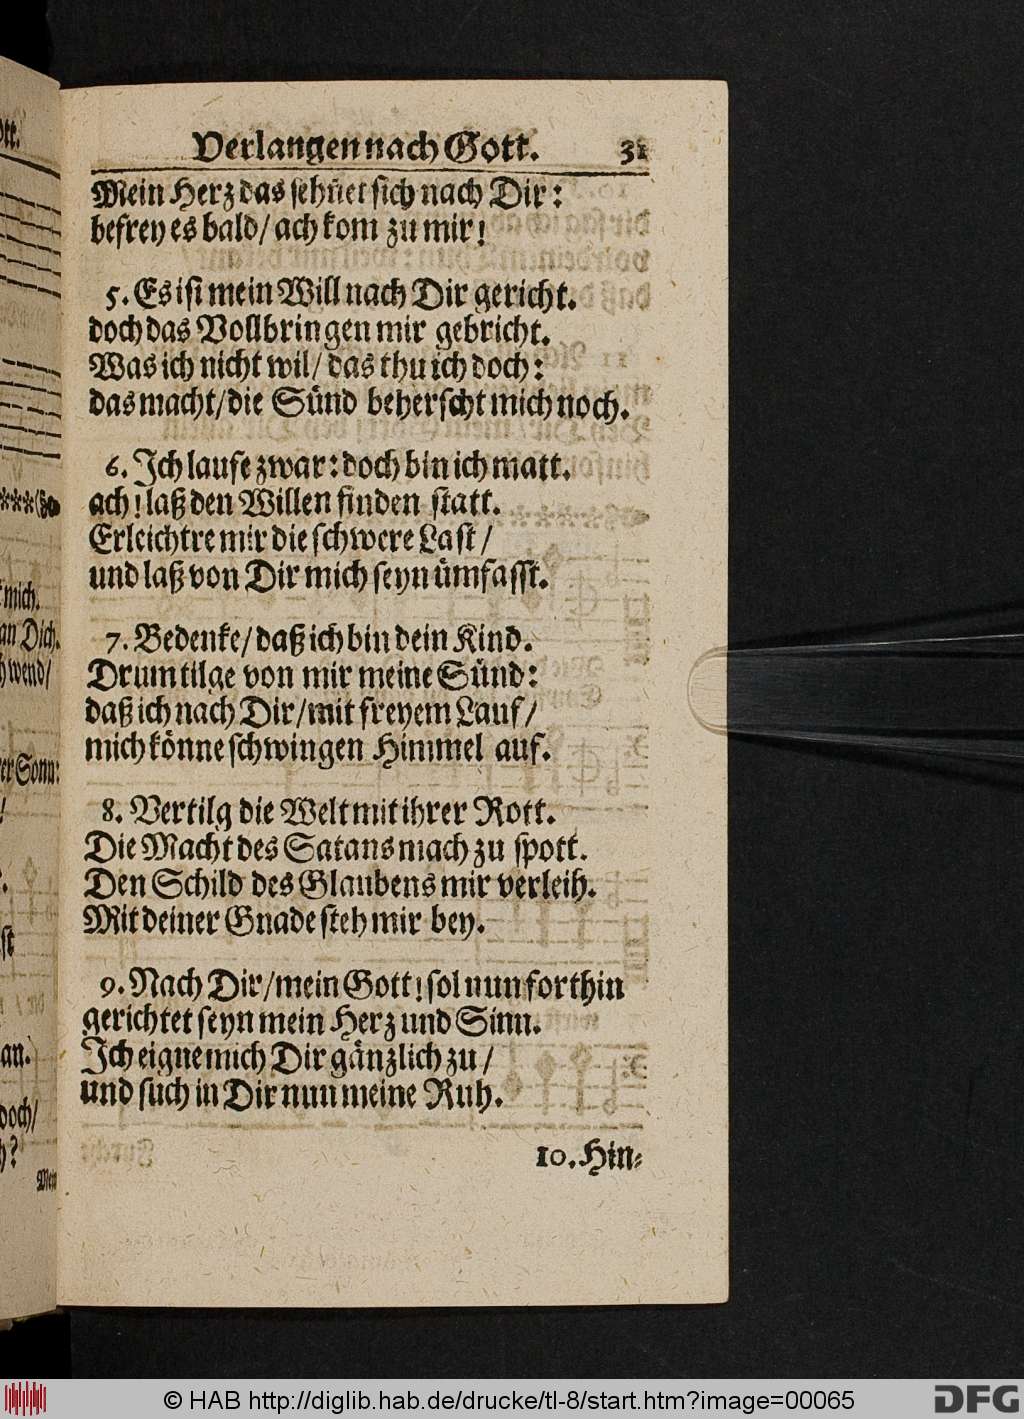 Verlangen nach Gott. 31
Mein Herz das sehnet sich nach Dir:
befrey es bald/ ach kom zu mir!
5. Es ist mein Will nach Dir gericht.
doch das Vollbringen mir gebricht.
Was ich nicht wil/ das thu ich doch:
das macht/ die Sünd beherscht mich noch.
6. Ich laufe zwar: doch bin ich matt.
ach! laß den Willen finden statt.
Erleichtre mir die schwere Last/
und laß von Dir mich seyn ümfasst.
7. Bedenke/ daß ich bin dein Kind.
Drum tilge von mir meine Sünd:
daß ich nach Dir/ mit freyem Lauf/
mich könne schwingen Himmel auf.
8. Vertilg die Welt mit ihrer Rott.
Die Macht des Satans mach zu spott.
Den Schild des Glaubens mir verleih.
Mit deiner Gnade steh mir bey.
9. Nach Dir/ mein Gott! sol nun forthin
gerichtet seyn mein Herz und Sinn.
Ich eigne mich Dir gänzlich zu/
und such in Dir nun meine Ruh.
10. Hin-
mich.
an Dich.
wend/
Sonn:
an.
doch/
Mein
© HAB http://diglib.hab.de/drucke/tl-8/start.htm?image=00065
DFG